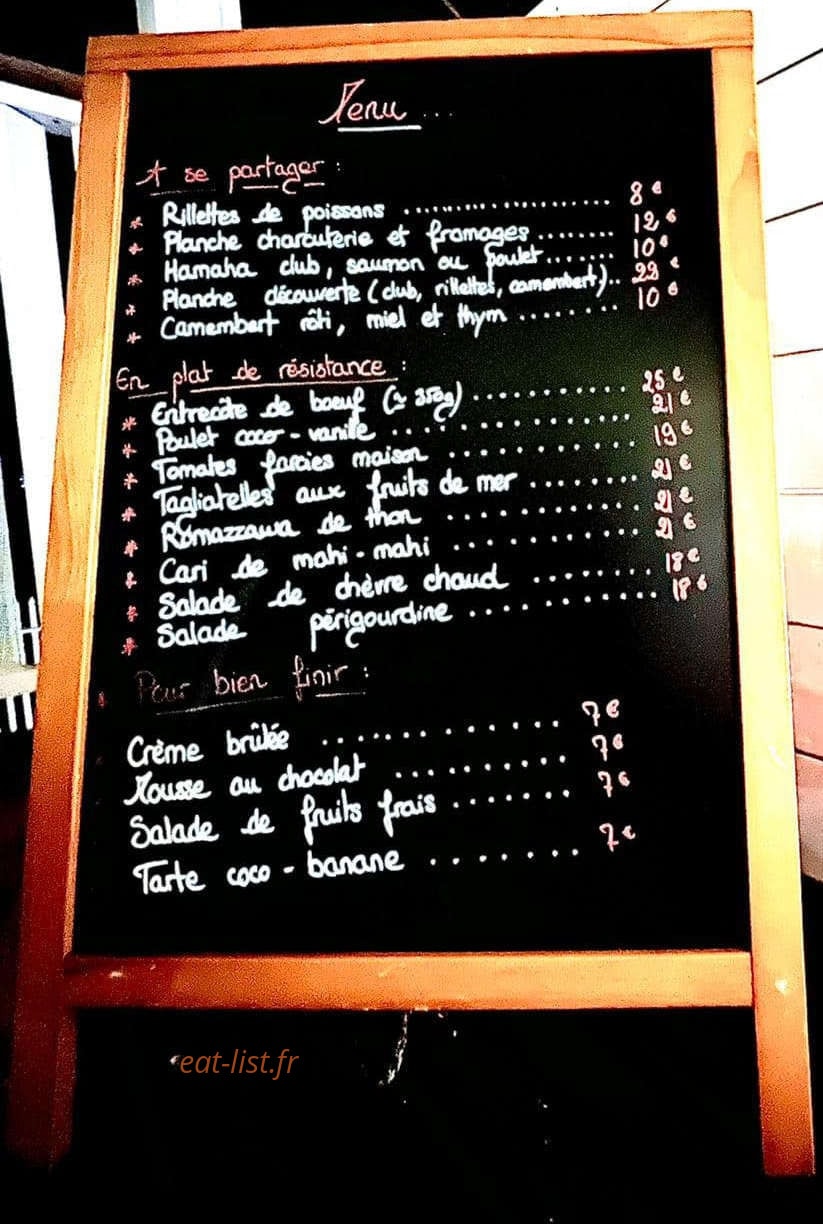 Menu ...
A se partager :
* Rillettes de poissons .................... 8€
* Planche charcuterie et fromages ........ 12€
* Hamaha club, saumon ou poulet ....... 10€
* Planche découverte (club, rillettes, camembert) .. 22€
* Camembert rôti, miel et thym ........ 10€
En plat de résistance :
* Entrecôte de boeuf (≃ 350g) ............ 25€
* Poulet coco - vanille ................. 21€
* Tomates farcies maison ............. 19€
* Tagliatelles aux fruits de mer ........ 21€
* Romazzawa de thon ............. 21€
* Cari de mahi - mahi ............ 21€
* Salade de chèvre chaud ........ 18€
* Salade périgourdine ............ 18€
Pour bien finir :
Crème brûlée ............... 7€
Mousse au chocolat ........... 7€
Salade de fruits frais ........ 7€
Tarte coco - banane ........ 7€
eat-list.fr